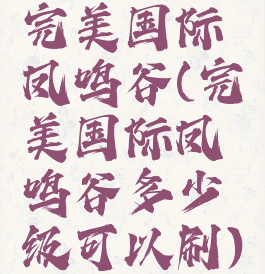 完美国际
凤鸣谷(完
美国际凤
鸣谷多少
级可以刷)